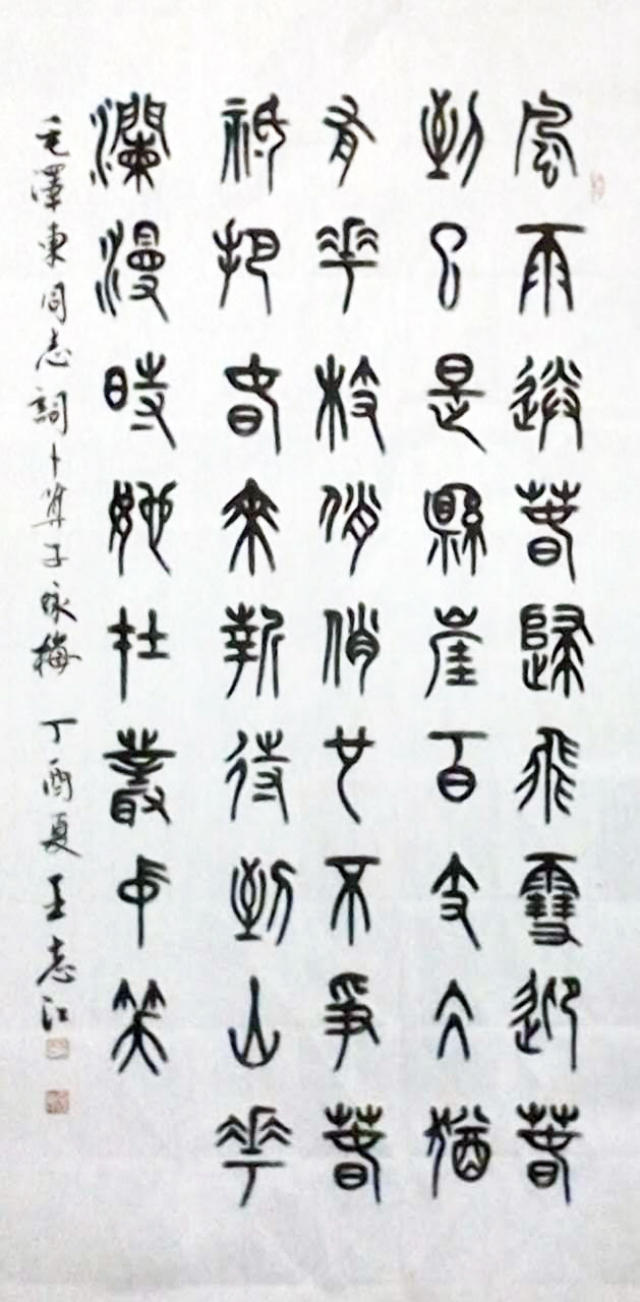 風雨送春歸飛雪迎春
到已是縣崖百丈仌猶
有花枝俏俏也不爭春
祇把春來報待到山花
瀾漫時她在叢中笑
毛澤東同志詞卜算子咏梅 丁酉夏王志江